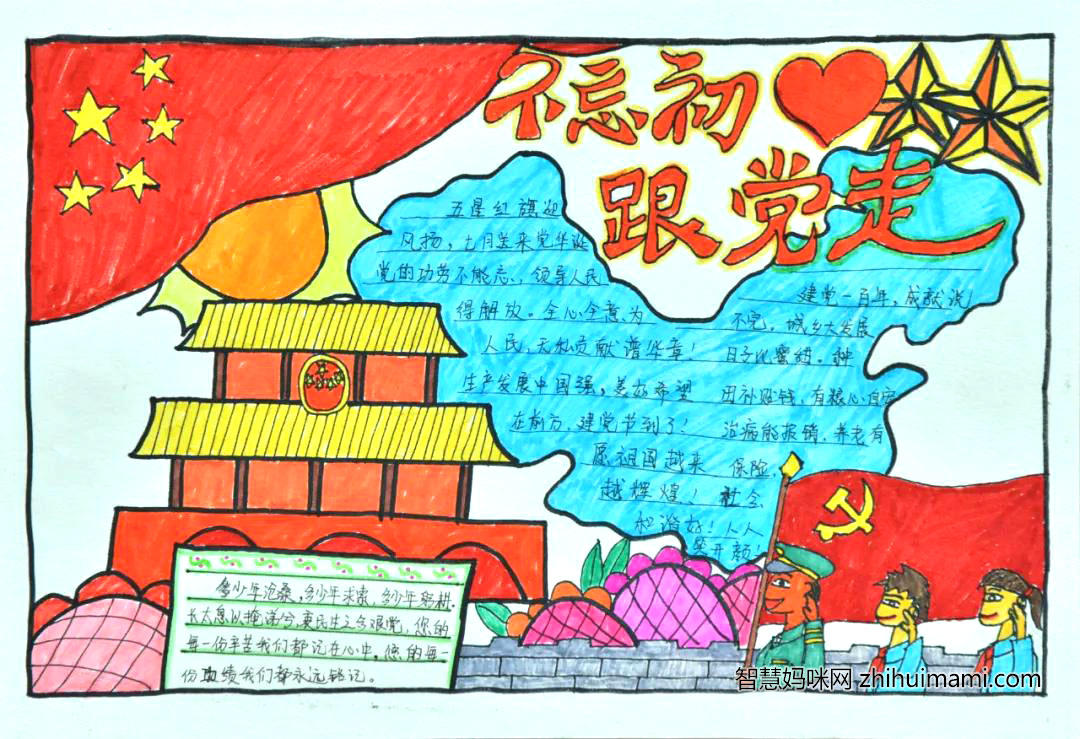 不忘初
跟党走
五星红旗迎
风扬，七月送来党华诞
党的功劳不能忘，领导人民
得解放。全心全意为
人民，无私贡献谱华章！
生产发展中国强，美好希望
在前方，建党节到了！
愿祖国越来
越辉煌！
建党一百年，成就说
不完。城乡大发展
日子比蜜甜。种
田补贴钱，有粮心自安
治病能报销，养老有
保险，
社会
和谐好！人人
笑开颜！
多少年沧桑，多少年求索，多少年耕耘.
长太息以掩涕兮，哀民生之多艰党，您的
每一份辛苦我们都记在心中。您的每一
份功绩我们都永远铭记。
智慧妈咪网 zhihuimami.com